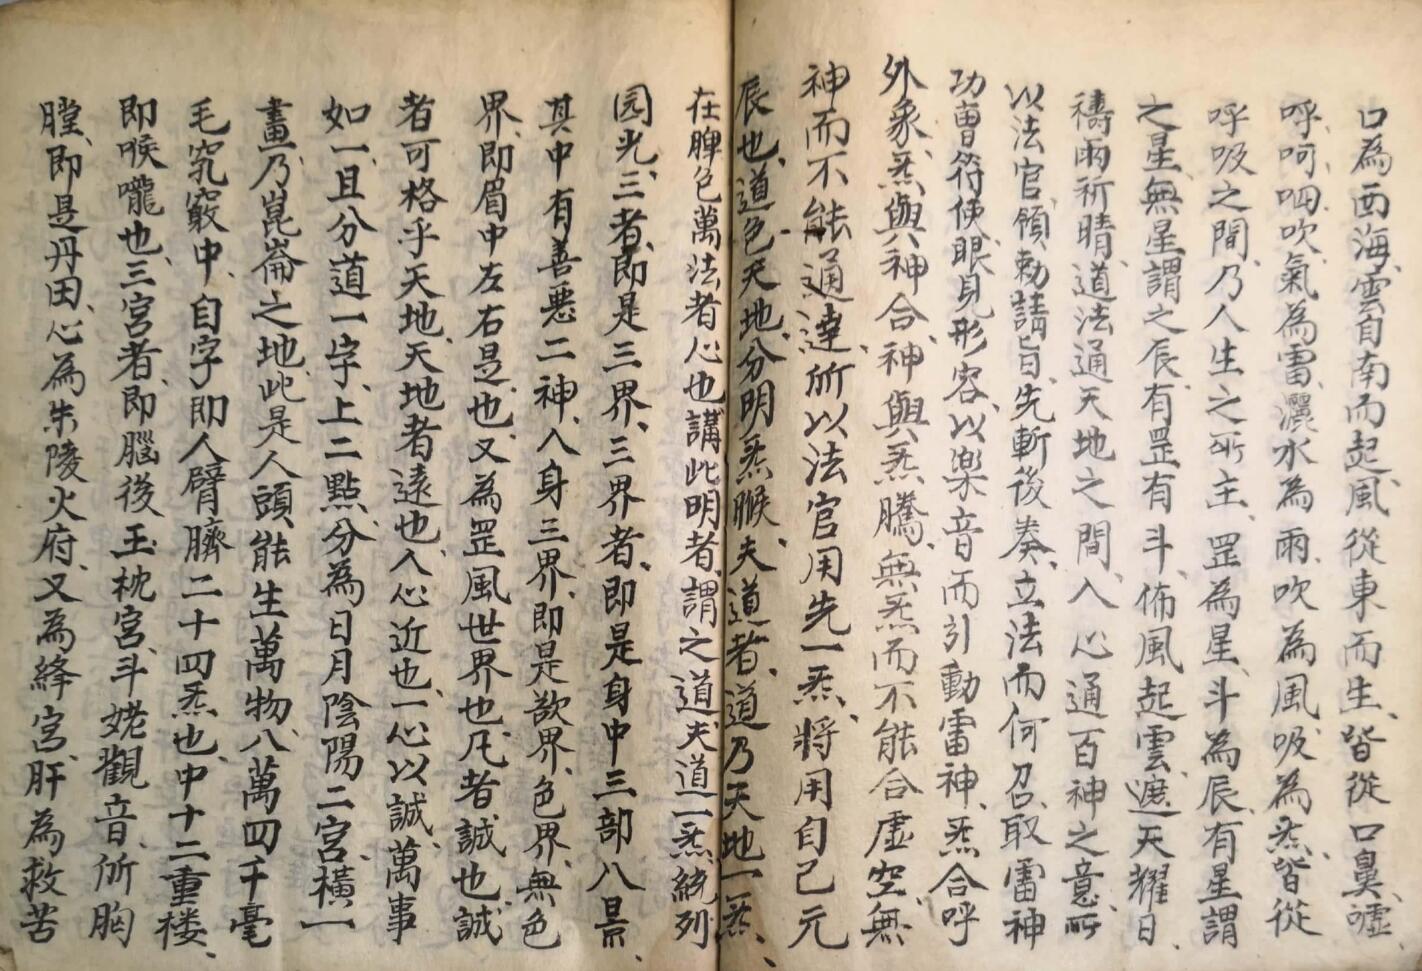 口為西海、雲自南而起、風從東而生、皆從口鼻、噓、
呼、呵、呬、吹、氣為雷、灑水為雨、吹為風、吸為炁、皆從
呼吸之間、乃人生之所主、罡為星、斗為辰、有星謂
之星、無星謂之辰、有罡有斗、佈風起雲、遮天耀日、
禱雨祈晴、道法通天地之間、入心通百神之意、所
以法官領勅請旨、先斬後奏、立法而何、召取雷神
功曹符使、眼見形容、以楽音而引動雷神、炁合呼
外象、炁與神合、神與炁騰、無炁而不能合虛空、無
神而不能通達、所以法官用先一炁、將用自己元
辰也、道色天地、分明炁、夫道者、道乃天地一炁、
在脾色萬法者心也、講此明者、謂之道、夫道一炁統列
园光、三者、即是三界、三界者、即是身中三部八景
其中有善惡二神、入身三界、即是欲界、色界、無色
界、即眉中左右是也、又為罡風世界也、凡者誠也、誠
者可格乎天地、天地者遠也、人心近也、一心以誠、萬事
如一、且分道一字、上二點、分為日月陰陽二宮、橫一
畫、乃崑崙之地、此是人頭、能生萬物、八萬四千毫
毛竅中、自字即人臂臍二十四炁也、中十二重楼、
即喉嚨也、三宮者、即腦後玉枕宮、斗姥觀音、所胸
膛、即是丹田、心為朱陵火府、又為絳宮、肝為救苦